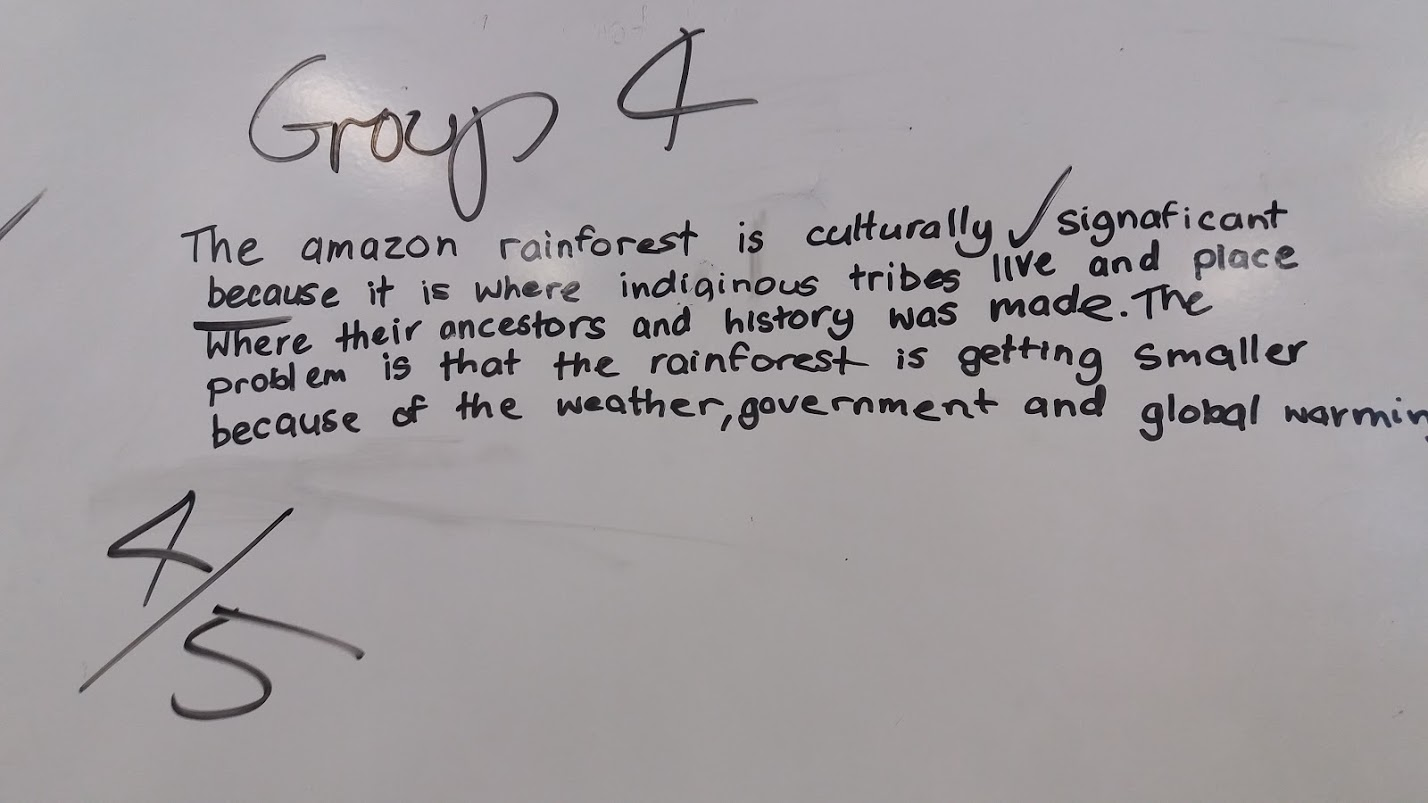 Group 4
The amazon rainforest is culturally ✓ signaficant
because it is where indiginous tribes live and place
where their ancestors and history was made. The
problem is that the rainforest is getting smaller
because of the weather, government and global warmin
4/5